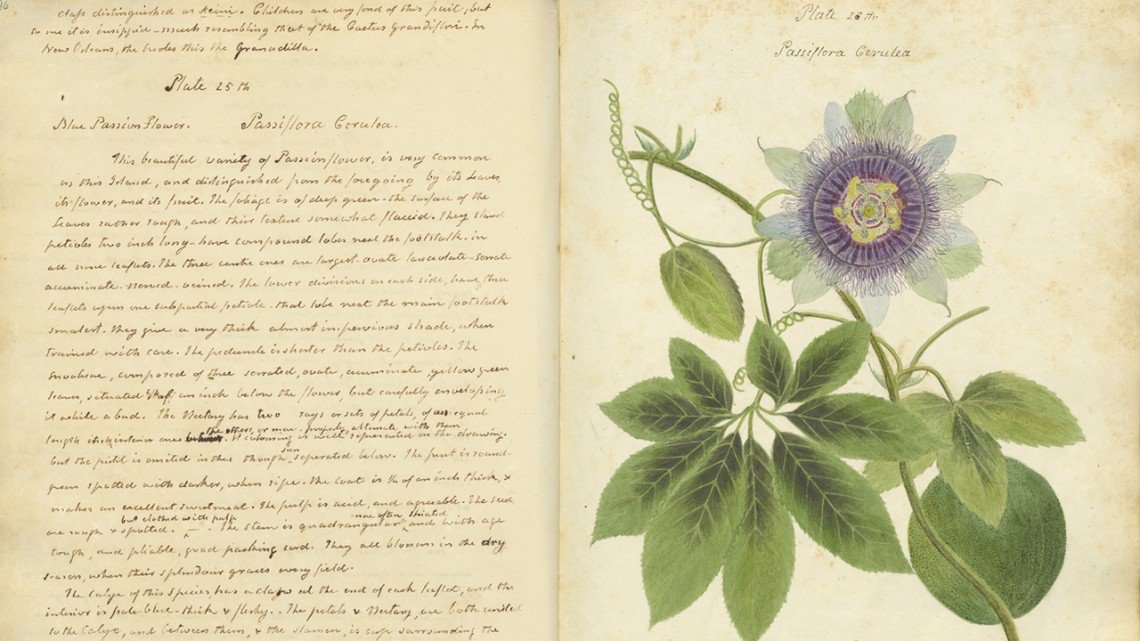 36
class distinguished as . Children are very fond of this fruit, but
to me it is insipid - much resembling that of the Cactus Grandiflori. In
New Orleans, the Creoles this the Granadilla.
Plate 25th
Blue Passion Flower. Passiflora Cerulea.
This beautiful variety of Passionflower, is very common
in this Island, and distinguished from the foregoing by its leaves,
its flower, and its fruit. The foliage is of deep green - the surface of the
leaves rather rough, and their texture somewhat flaccid. They stand
petioles two inch long - have compound lobes next the footstalk. in
all nine leaflets. The three centre ones are largest. ovate lanceolate - serrate
accuminate. veined. The lower divisions on each side, have three
leaflets upon one subpartial petiole. that lobe next the main footstalk
smallest. They give a very thick almost impervious shade, when
trained with care. The peduncle is shorter than the petioles. The
, composed of three serrated, ovate, acuminate yellow green
leaves, situated half an inch below the flower, but carefully enveloping
it while a bud. The Nectary has two rays or sets of petals, of an equal
the others, or more properly, alternate with them
length its interior ones . It colouring is well represented in the drawing.
but the pistil is omited in this though seen seperated below. The fruit is round
green spotted with darker, when ripe. The coat is ¾ of an inch thick, &
makes an excellent sweetmeat. The pulp is acid, and agreeable. The seed
but clothed with pulp more often striated
are rough & spotted. The stem is quadrangular and with age
tough, and pliable, good packing cord. They all blossom in the dry
season, when their splendour graces every field.
The Calyx of this species has a claw at the end of each leaflet, and the
interior is pale blue - thick & fleshy. The petals & Nectary, are both united
to the Calyx, and between them, & the stamen, is a cup surrounding the
Plate 25th
Passiflora Cerulea